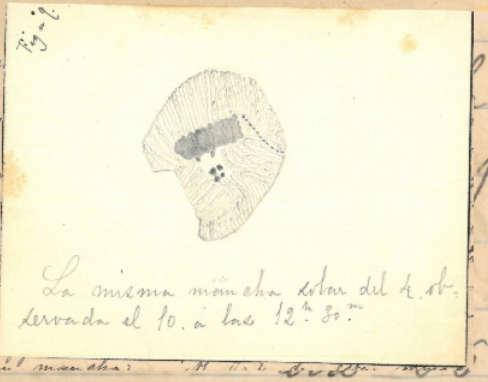 Fig. 2.
La misma mancha solar del 4. ob-
servada el 10. á las 12.h 30.m
manchas